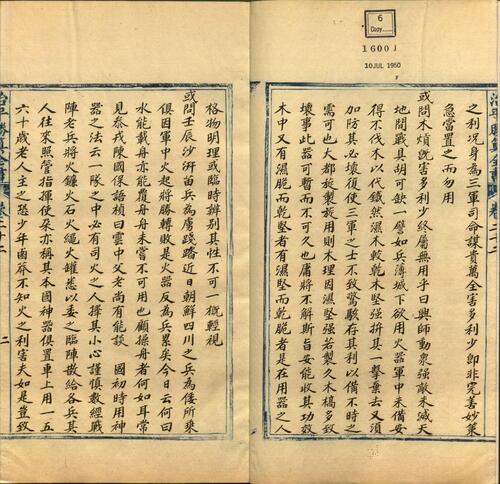 6
Copy
1600 J
10 JUL 1950
之利況身為三軍司命謀貴萬全害多利少即非完善妙策
急當置之而勿用
或問木煩既害多利少終屬無用乎曰興師動衆強敵未滅天
地間戰具胡可缺一譬如兵薄城下欲用火器軍中未備安
得不伐木以代鐵然濕木較乾木堅強拚其一擊棄去又須
加防其必壞復使三軍之士不致驚駭存其利以備不時之
需可也大都旋製旋用則木理因濕堅強若製久木槁多致
壞事此器可暫而不可久也庸將不解斯旨安能收其功效
木中又有濕脆而乾堅者有濕堅而乾脆者是在用器之人
格物明理或臨時辨別其性不可一概輕視
或問壬辰沙洴笛兵為虜踐踏近日朝鮮四川之兵為倭所乘
俱因軍中火起將勝轉敗是火器反為兵累矣今日云何曰
水能載舟亦能覆舟舟未嘗不可用也顧操舟者何如耳常
見叅戎陳國保語稹曰雲中父老尚有能談 國初時用神
器之法云一隊之中必有司火之人擇其小心謹慎數經戰
陣老兵將火鐮火石火繩火罐悉以委之臨陣散給各兵其
人往來照管指揮使矣亦稱其本國神器俱置車上用一五
六十歲老人主之恐少年鹵莽不知火之利害夫如是豈致
卷二十二
二